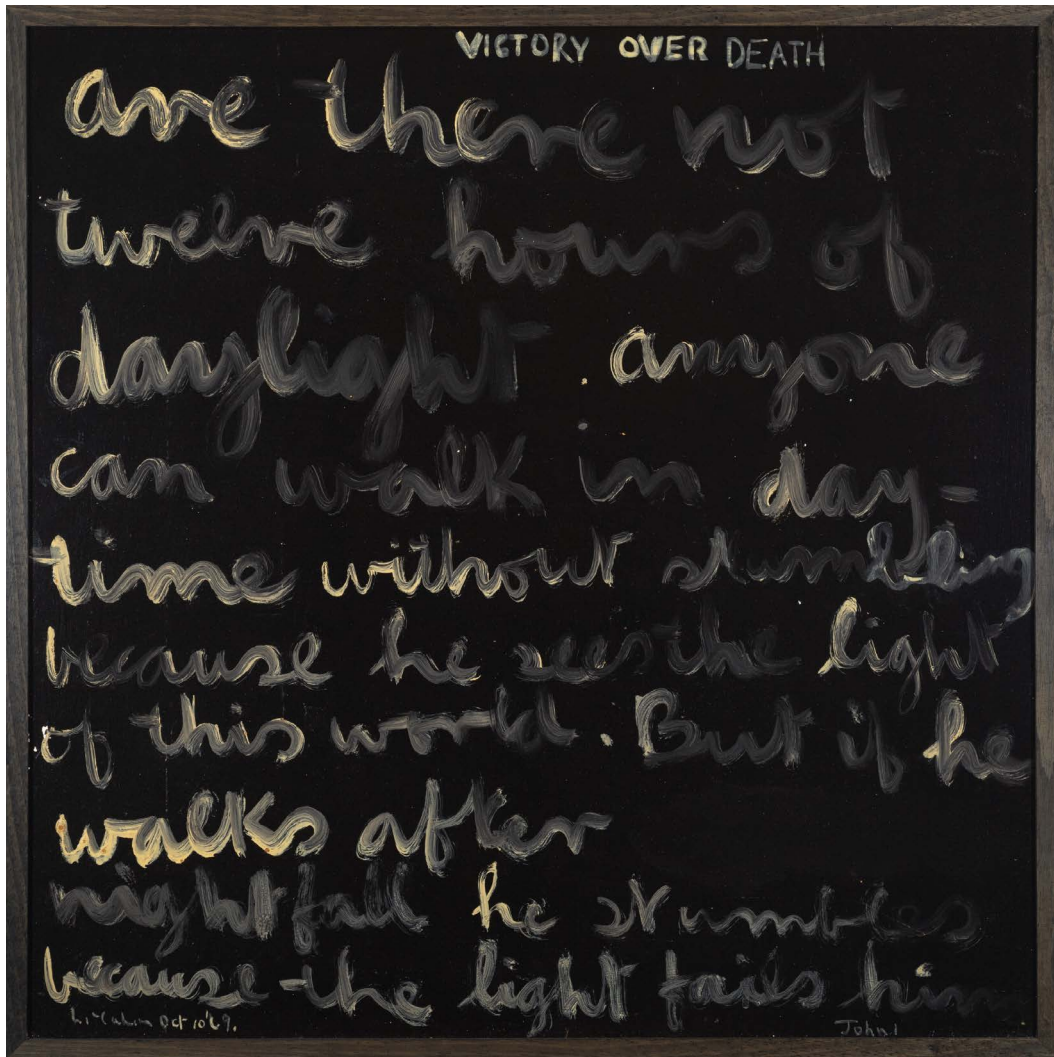 VICTORY OVER DEATH
are there not
twelve hours of
daylight . anyone
can walk in day-
time without stumbling
because he sees the light
of this world. But if he
walks after
nightfall he stumbles
because the light fails him
McCahon Oct 10'69.
John 1